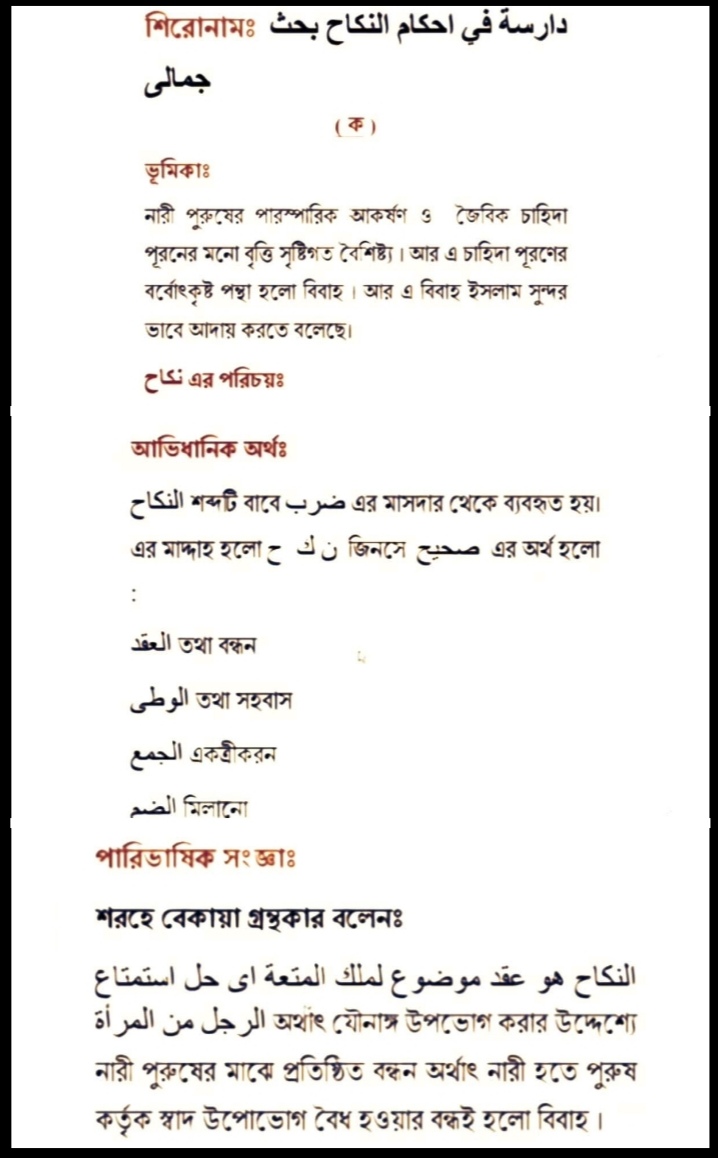 শিরোনামঃ دارسة في احكام النكاح بحث
جمالى
( ক )
ভূমিকাঃ
নারী পুরুষের পারস্পারিক আকর্ষণ ও জৈবিক চাহিদা
পূরনের মনো বৃত্তি সৃষ্টিগত বৈশিষ্ট্য। আর এ চাহিদা পূরণের
বর্বোৎকৃষ্ট পন্থা হলো বিবাহ । আর এ বিবাহ ইসলাম সুন্দর
ভাবে আদায় করতে বলেছে।
نكاح এর পরিচয়ঃ
আভিধানিক অর্থঃ
النكاح শব্দটি বাবে ضرب এর মাসদার থেকে ব্যবহৃত হয়।
এর মাদ্দাহ হলো ن ك ح জিনসে صحيح এর অর্থ হলো
:
العقد তথা বন্ধন
الوطى তথা সহবাস
الجمع একত্রীকরন
الضم মিলানো
পারিভাষিক সংজ্ঞাঃ
শরহে বেকায়া গ্রন্থকার বলেনঃ
النكاح هو عقد موضوع لملك المتعة اى حل استمتاع
الرجل من المرأة অর্থাৎ যৌনাঙ্গ উপভোগ করার উদ্দেশ্যে
নারী পুরুষের মাঝে প্রতিষ্ঠিত বন্ধন অর্থাৎ নারী হতে পুরুষ
কর্তৃক স্বাদ উপোভোগ বৈধ হওয়ার বন্ধই হলো বিবাহ ।